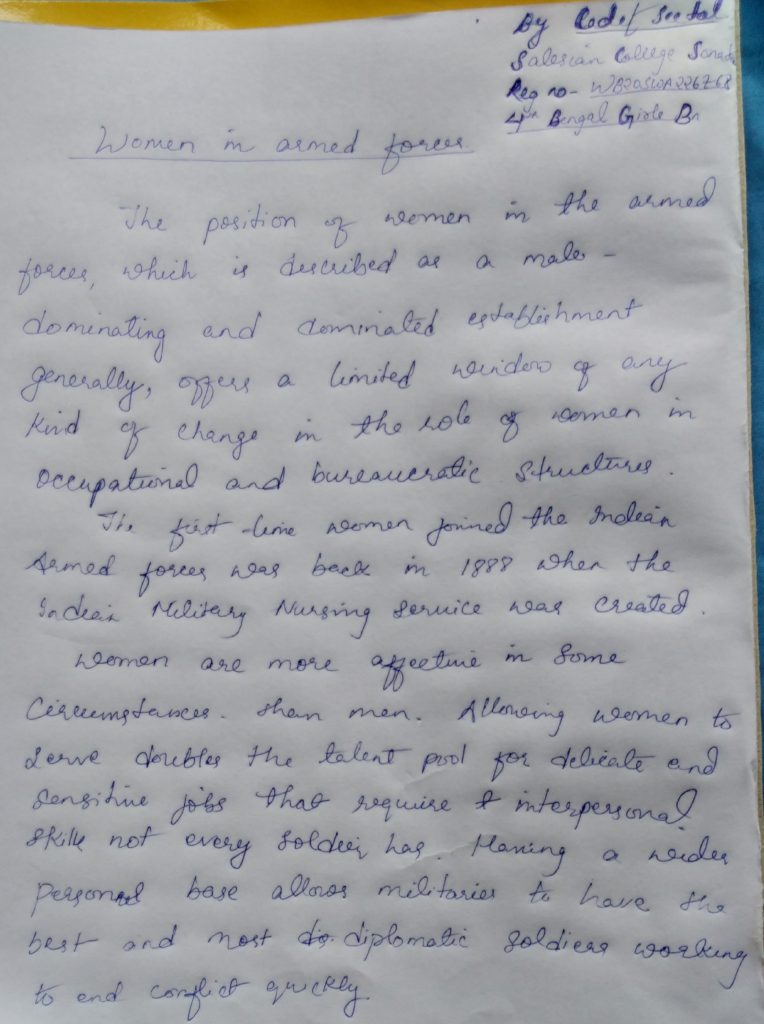 By Cadet Seetal
Salesian College Sonada
Reg no- WB20SWA226768
4th Bengal Girls Bn
Women in armed forces.
The position of women in the armed
forces, which is described as a male-
dominating and dominated establishment
generally, offers a limited window of any
kind of change in the role of women in
occupational and bureaucratic structures.
The first time women joined the Indian
Armed forces was back in 1888 when the
Indian Military Nursing Service was created.
Women are more affective in some
Circumstances. than men. Allowing women to
serve doubles the talent pool for delicate and
sensitive jobs that require interpersonal
skills not every soldier has. Having a wider
personnel base allows militaries to have the
best and most diplomatic soldiers working
to end conflict quickly.